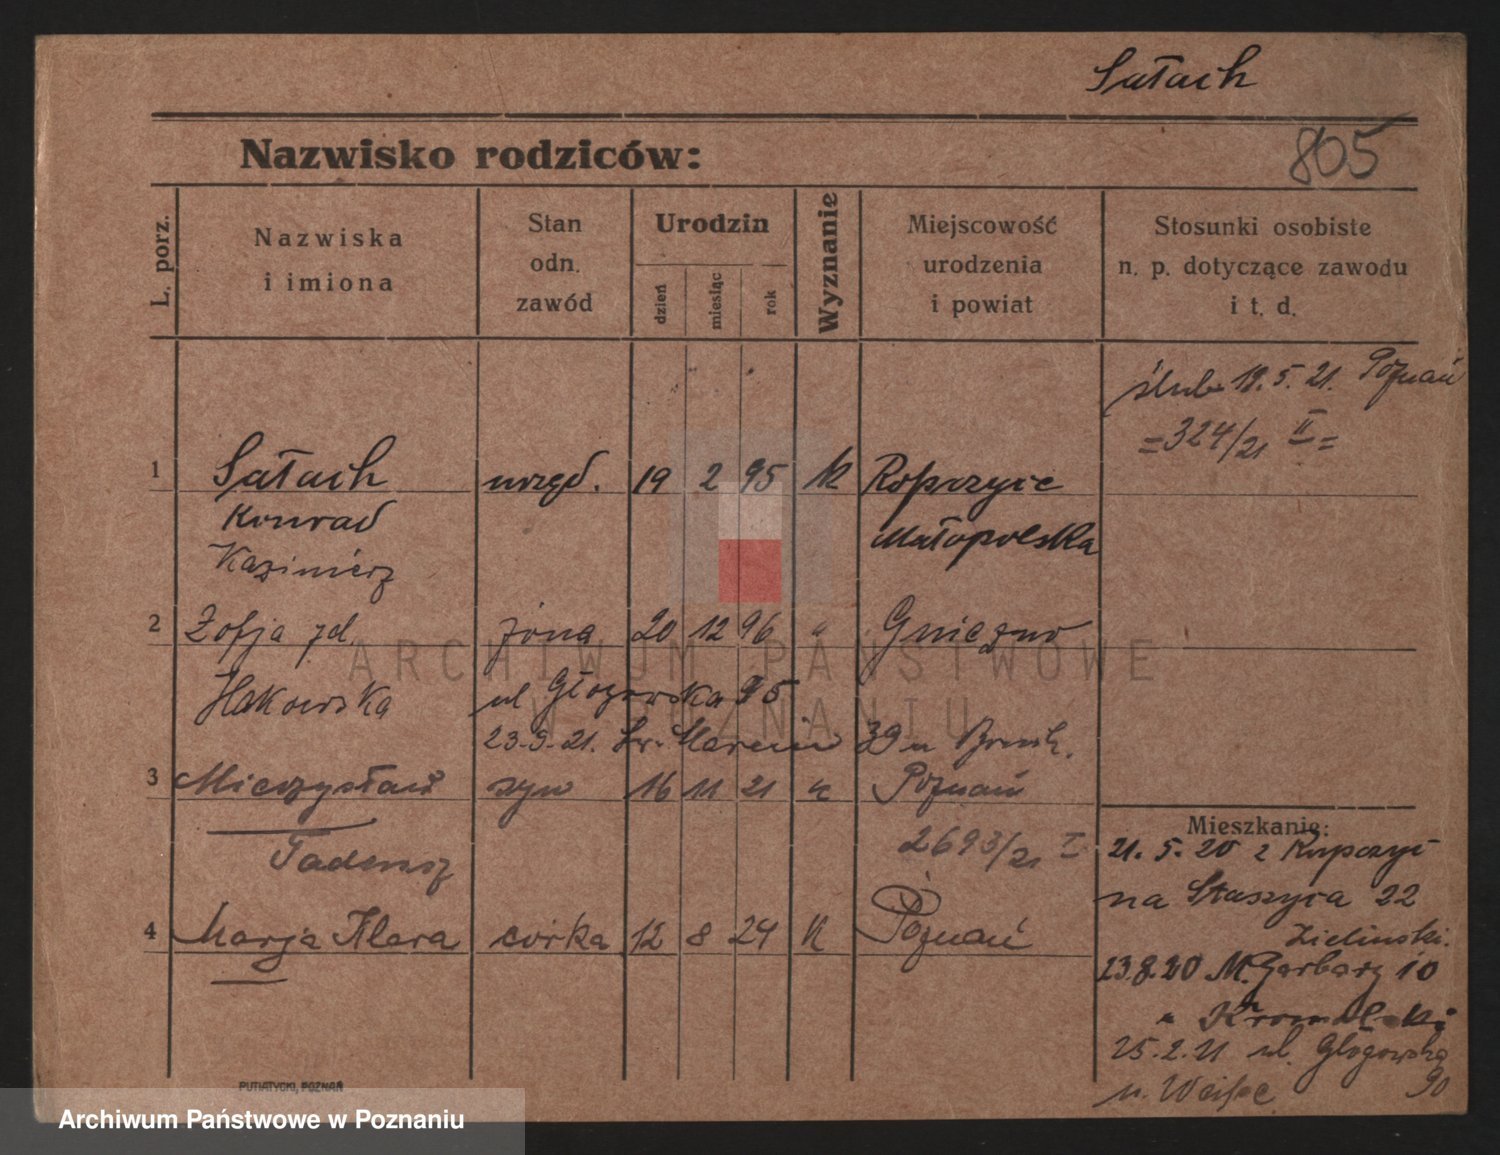 Sałach
805
Nazwisko rodziców:
L. porz.
Nazwiska
i imiona
Stan
odn.
zawód
Urodzin
dzień
miesiąc
rok
Wyznanie
Miejscowość
urodzenia
i powiat
Stosunki osobiste
n. p. dotyczące zawodu
i t. d.
ślub 19. 5. 21. Poznań
=324/21 II=
1 Sałach urzęd. 19 2 95 K Ropczyce
Konrad Małopolska
Kazimierz
2 Zofja zd. żona 20 12 96 " Gniezno
ul Głogowska 95
23.9.21. Św. Marcin 39 u
3 Mieczysław syn 16 11 21 " Poznań
Tadeusz 2693/21 I
4 Marja Klara córka 12 8 24 K Poznań
Mieszkanie:
21. 5. 20 z Ropczyc
na Staszyca 22
Zielinski.
23.8.20 M. Garbary 10
25.2.21 ul. Głogowska
90
PUTIATYCKI, POZNAŃ
ARCHIWUM PAŃSTWOWE
W POZNANIU
Archiwum Państwowe w Poznaniu